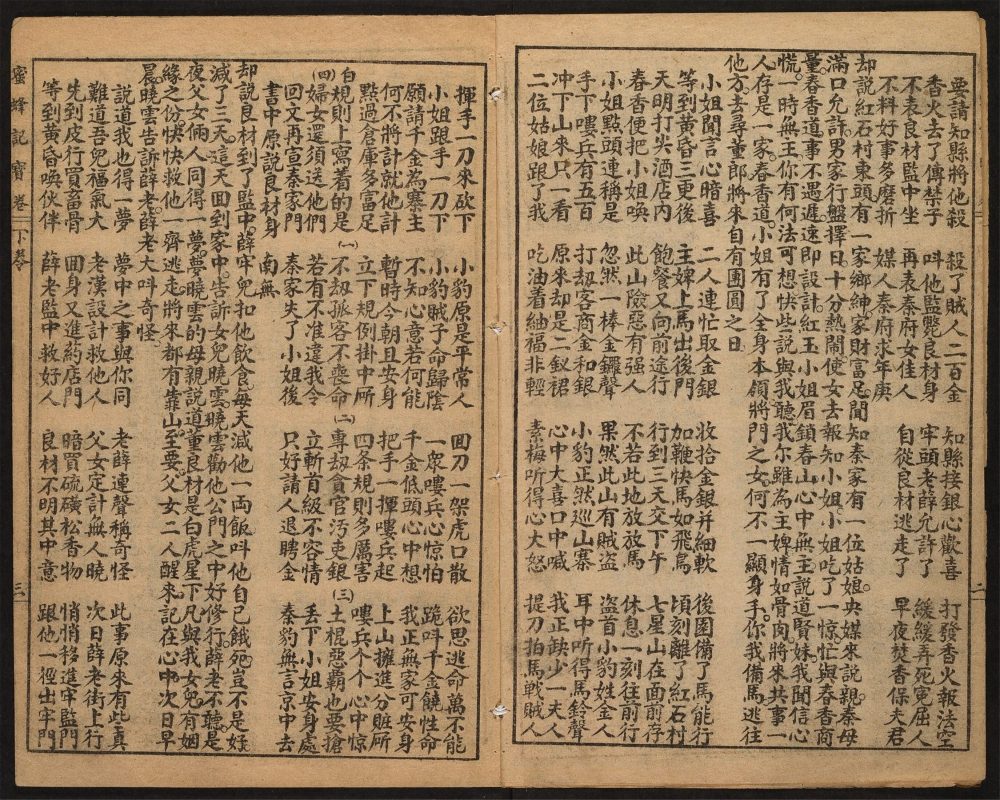 要請知縣將他殺　殺了賊人二百金　知縣接銀心歡喜　打發香火報法空
香火去了傳禁子　叫他監斃良材身　牢頭老薛允許了　緩緩弄死寃屈人
不表良材監中坐　再表秦府女佳人　自從良材逃走了　早夜焚香保夫君
不料好事多磨折　媒人秦府求年庚
却説紅石村東頭有一家鄉紳家財富足聞知秦家有一位姑娘央媒來説親秦母
滿口允許男家行盤擇日十分熱鬧使女去報知小姐小姐吃了一惊忙與春香商
量春香道事不遇遲速即設計紅玉小姐眉鎖春山心中無主説道賢妹我聞信心
慌一時無主你有何法可想快些説與我聽我尔雖為主婢情如骨肉將來共事一
人存是一家春香道小姐有了全身本領將門之女何不一顯身手你我備馬逃往
他方去尋董郎將來自有團圓之日
小姐聞言心暗喜　二人連忙取金銀　收拾金銀并細軟　後園備了馬能行
等到黄昏三更後　主婢上馬出後門　加鞭快馬如飛鳥　頃刻離了紅石村
天明打尖酒店內　飽餐又向前途行　行到三天交下午　七星山在面前存
春香便把小姐喚　此山險惡有強人　不若此地放放馬　休息一刻往前行
小姐點頭連稱是　忽然一棒金鑼聲　果然此山有賊盜　盜首小豹姓金人
手下嘍兵有五百　打刼客商金和銀　小豹正然巡山寨　耳中听得馬鈴聲
冲下山來只一看　原來却是二釵裙　心中大喜口中喊　我正缺少一夫人
二位姑娘跟了我　吃油着紬福非輕　素梅听得心大怒　提刀拍馬戰賊人
二
揮手一刀來砍下　小豹原是平常人　回刀一架虎口散　欲思逃命萬不能
小姐跟手一刀下　小豹賊子命歸陰　一衆嘍兵心惊怕　跪叫千金饒性命
願請千金為寨主　不知心意若何能　千金低頭心中想　我正無家可安身
何不將計就他計　暫時今朝且安身　把手一揮嘍兵起　上山擁進分賍所
點過倉庫多富足　立下規例掛中所　四条規則多厲害　嘍兵个个心中惊
白規則上寫着的是　㈠不刼孤客不喪命　㈡專刼貪官污吏銀　㈢土棍惡覇也要搶
㈣婦女還須送他們　若有不准違我令　立斬首級不容情　丢下小姐安身處
回文再宣秦家門　秦家失了小姐後　只好請人退聘金　秦豹無言京中去
書中原説良材身　南無
却説良材到了監中薛牢兒扣他飲食每天減他一両飯叫他自已餓死豈不是好
減了三天這天回到家中告訴女兒曉雲曉雲勸他公門之中好修行薛老不聽是
夜父女倆人同得一夢夢曉雲的母親説道董良材是白虎星下凡與我女兒有姻
緣之份快快救他一齊逃走將來都有靠山至要父女二人醒來記在心中次日早
晨曉雲告訴薛老薛老大叫奇怪
説道我也得一夢　夢中之事與你同　老薛連聲稱奇怪　此事原來有此真
難道吾兒福氣大　老漢設計救他人　父女定計無人曉　次日薛老街上行
先到皮行買畜骨　回身又進葯店門　暗買硫磺松香物　悄悄移進牢監門
等到黄昏喚伙伴　薛老監中救好人　良材不明其中意　跟他一徑出牢門
蜜蜂記寶卷　下卷　三